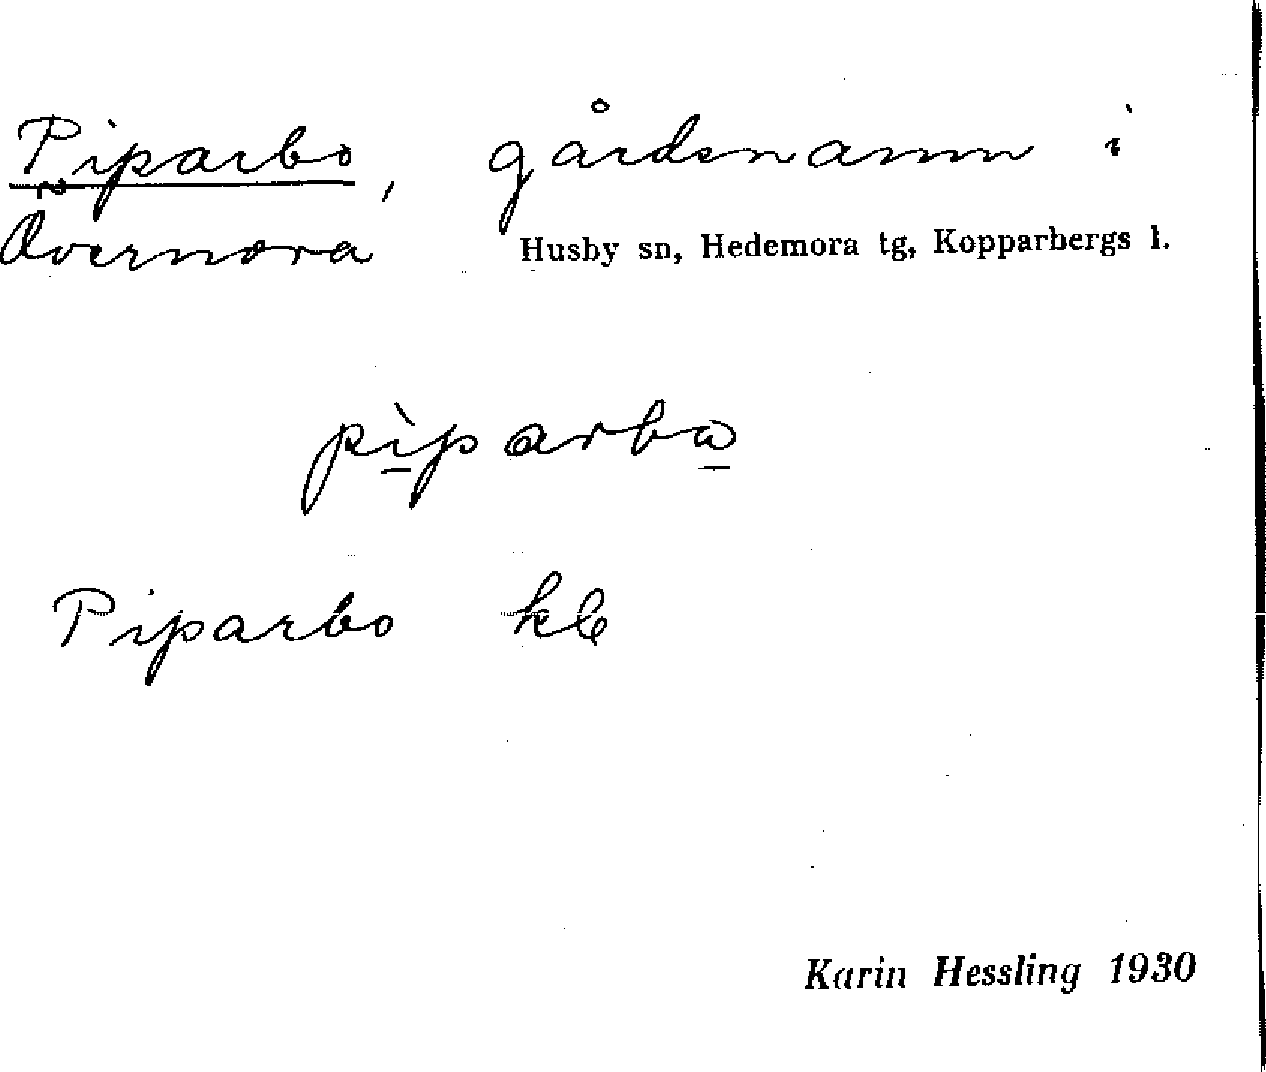 Piparbo, gårdsnamn i
Övernora Husby sn, Hedemora tg, Kopparbergs l.
pìparbω
Piparbo klb
Karin Hessling 1930